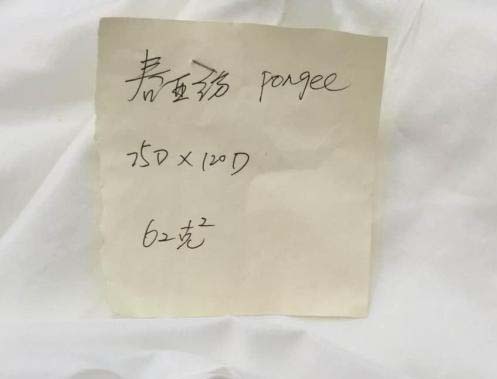 春亚纺 pongee
75D × 120D
62克²